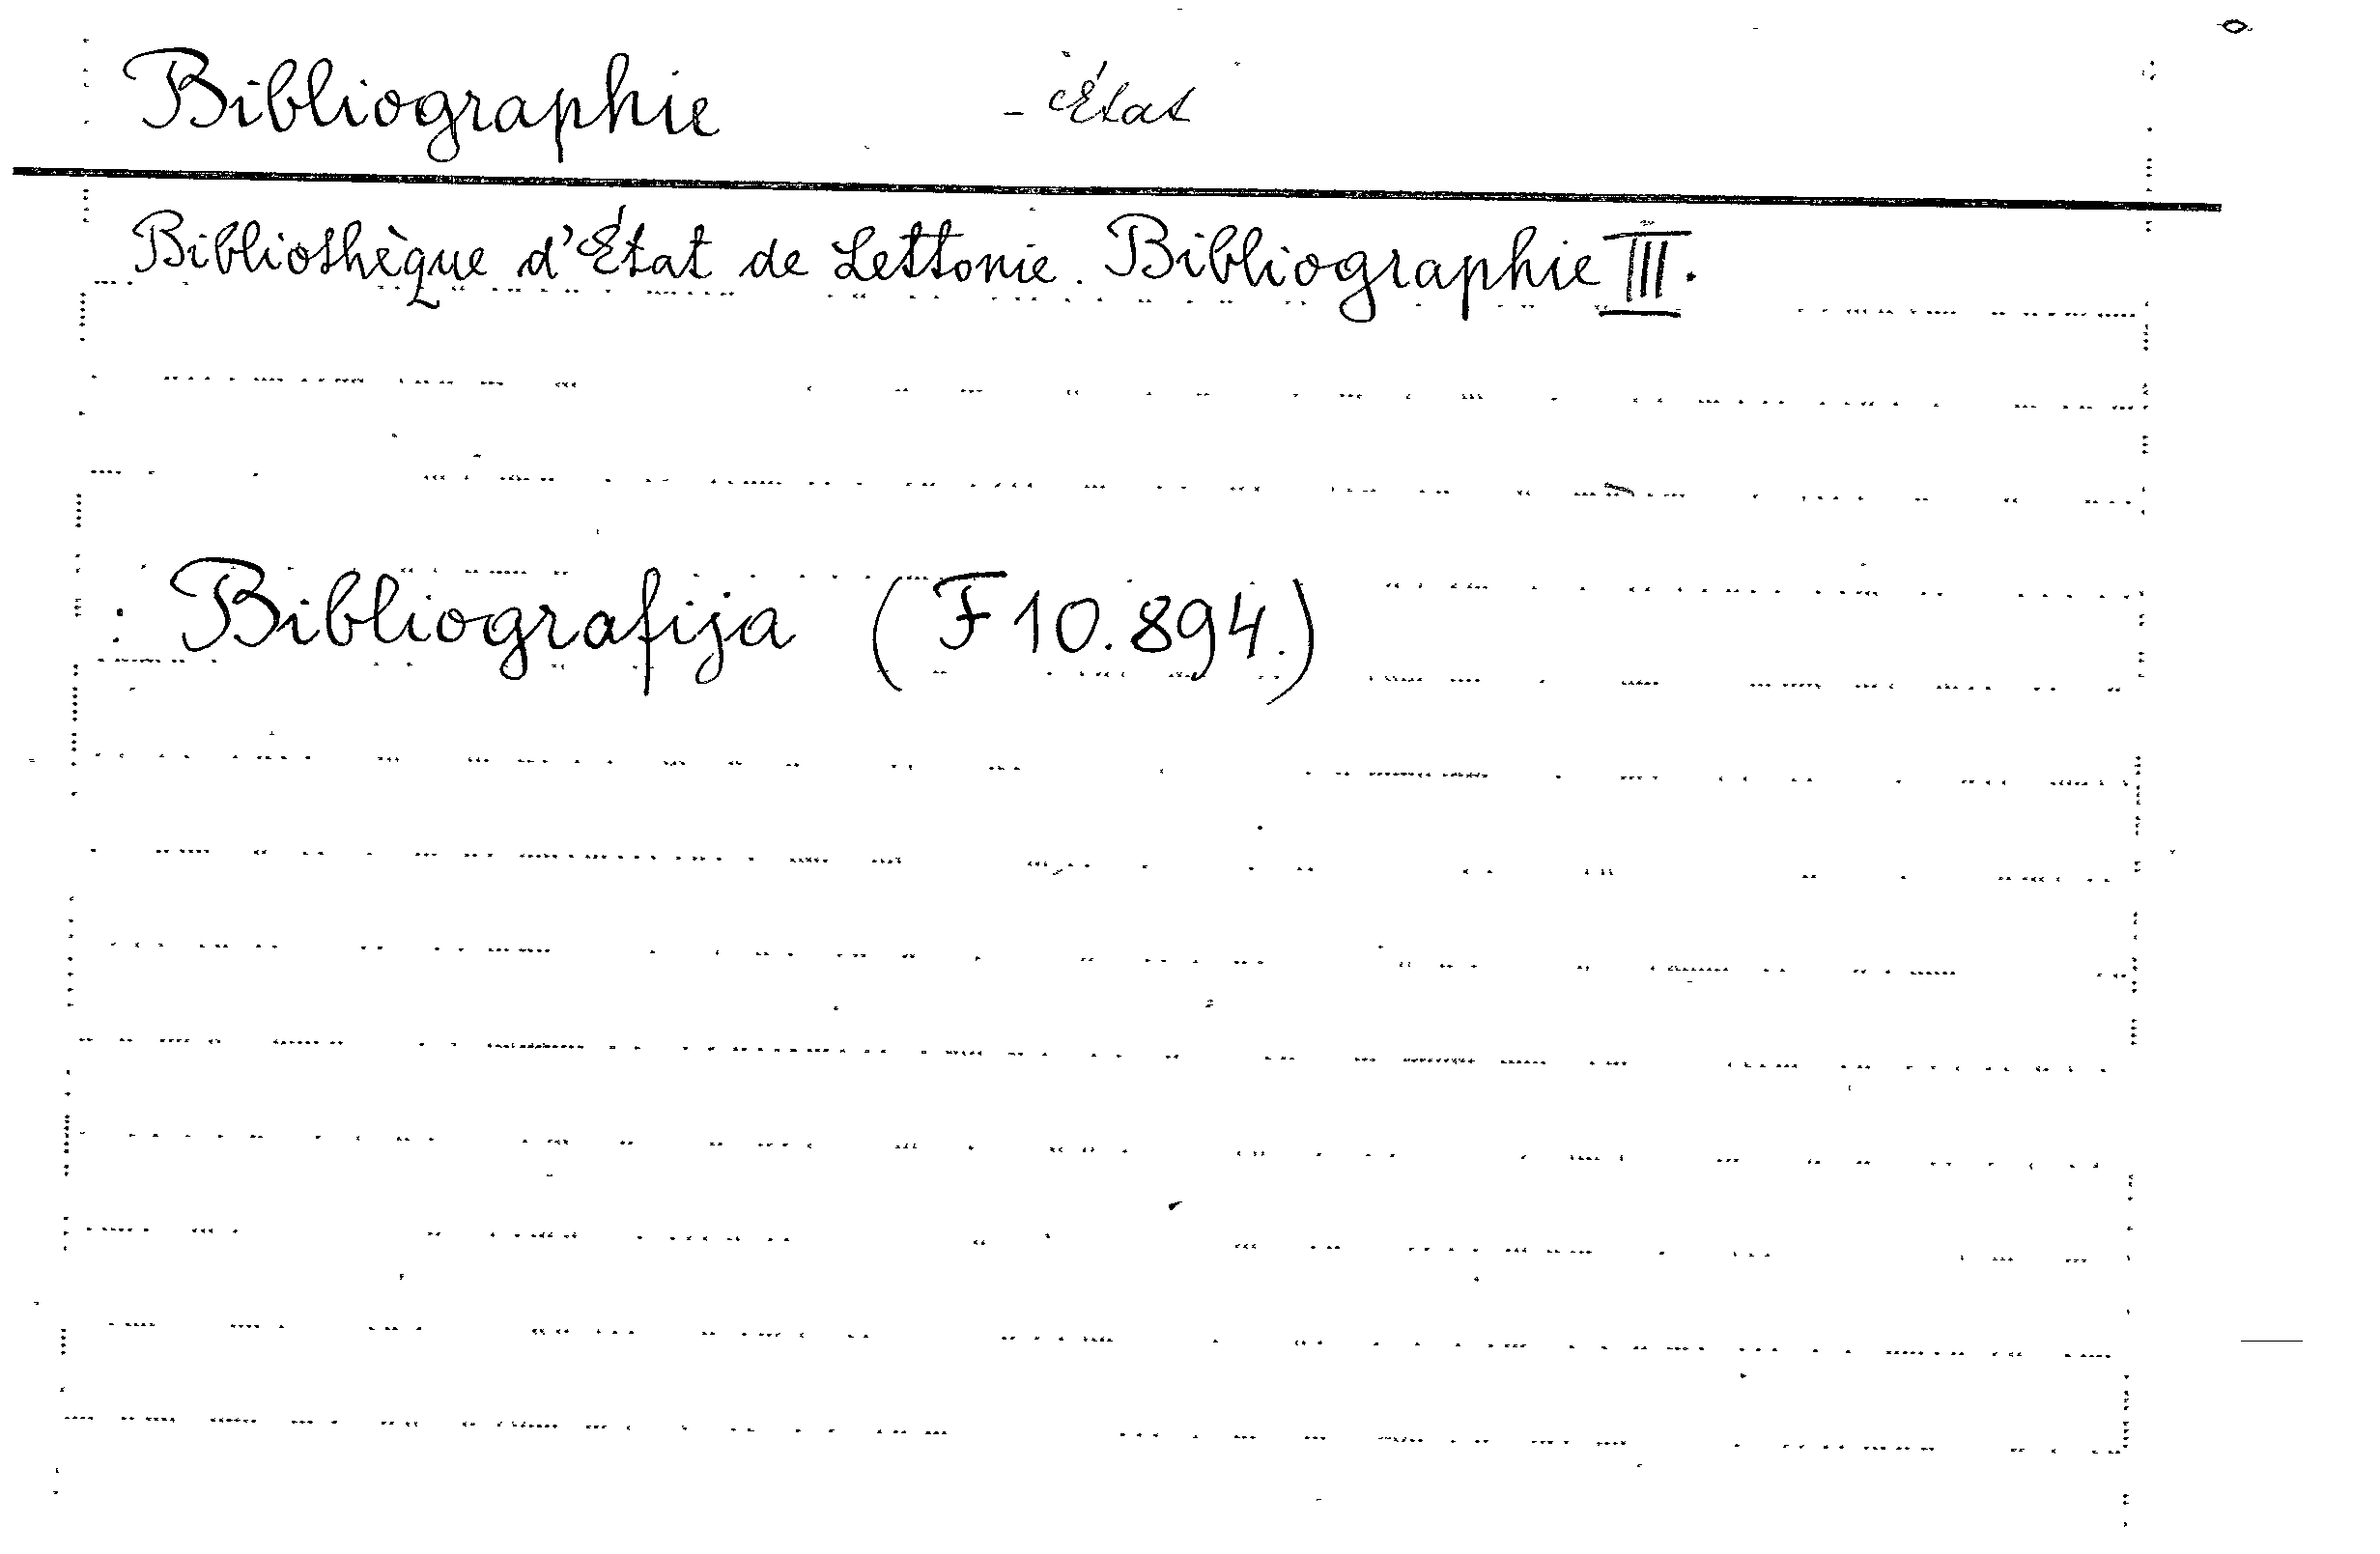 Bibliographie - État
Bibliothèque d'État de Lettonie. Bibliographie III.
: Bibliografija (F 10.894.)